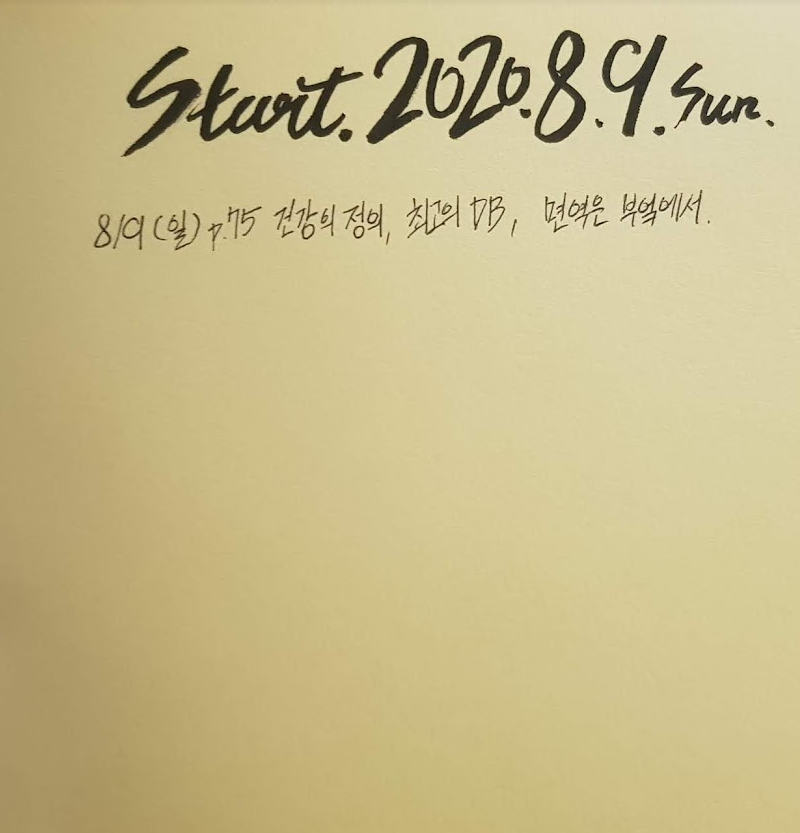 Start. 2020. 8. 9. Sun.
8/9 (일) p.75 건강의 정의, 최고의 DB, 면역은 부엌에서.